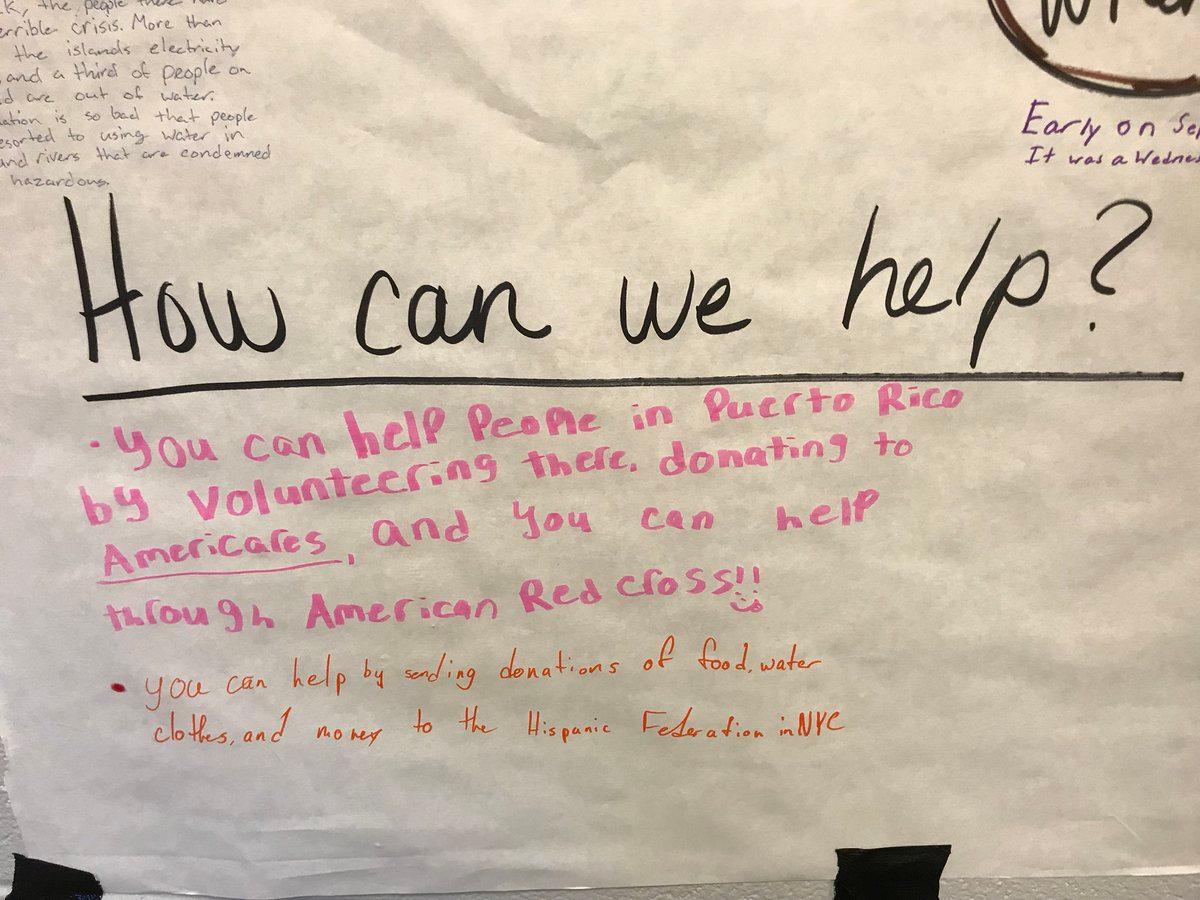 the people there
terrible crisis. More than
the islands electricity
and a third of people on
are out of water.
is so bad that people
resorted to using water in
and rivers that are condemned
hazardous.
Early on Sep
It was a Wednes
How can we help?
· you can help People in Puerto Rico
by Volunteering there, donating to
Americares, and you can help
through American Red cross!!
• you can help by sending donations of food, water
clothes, and money to the Hispanic Federation in NYC